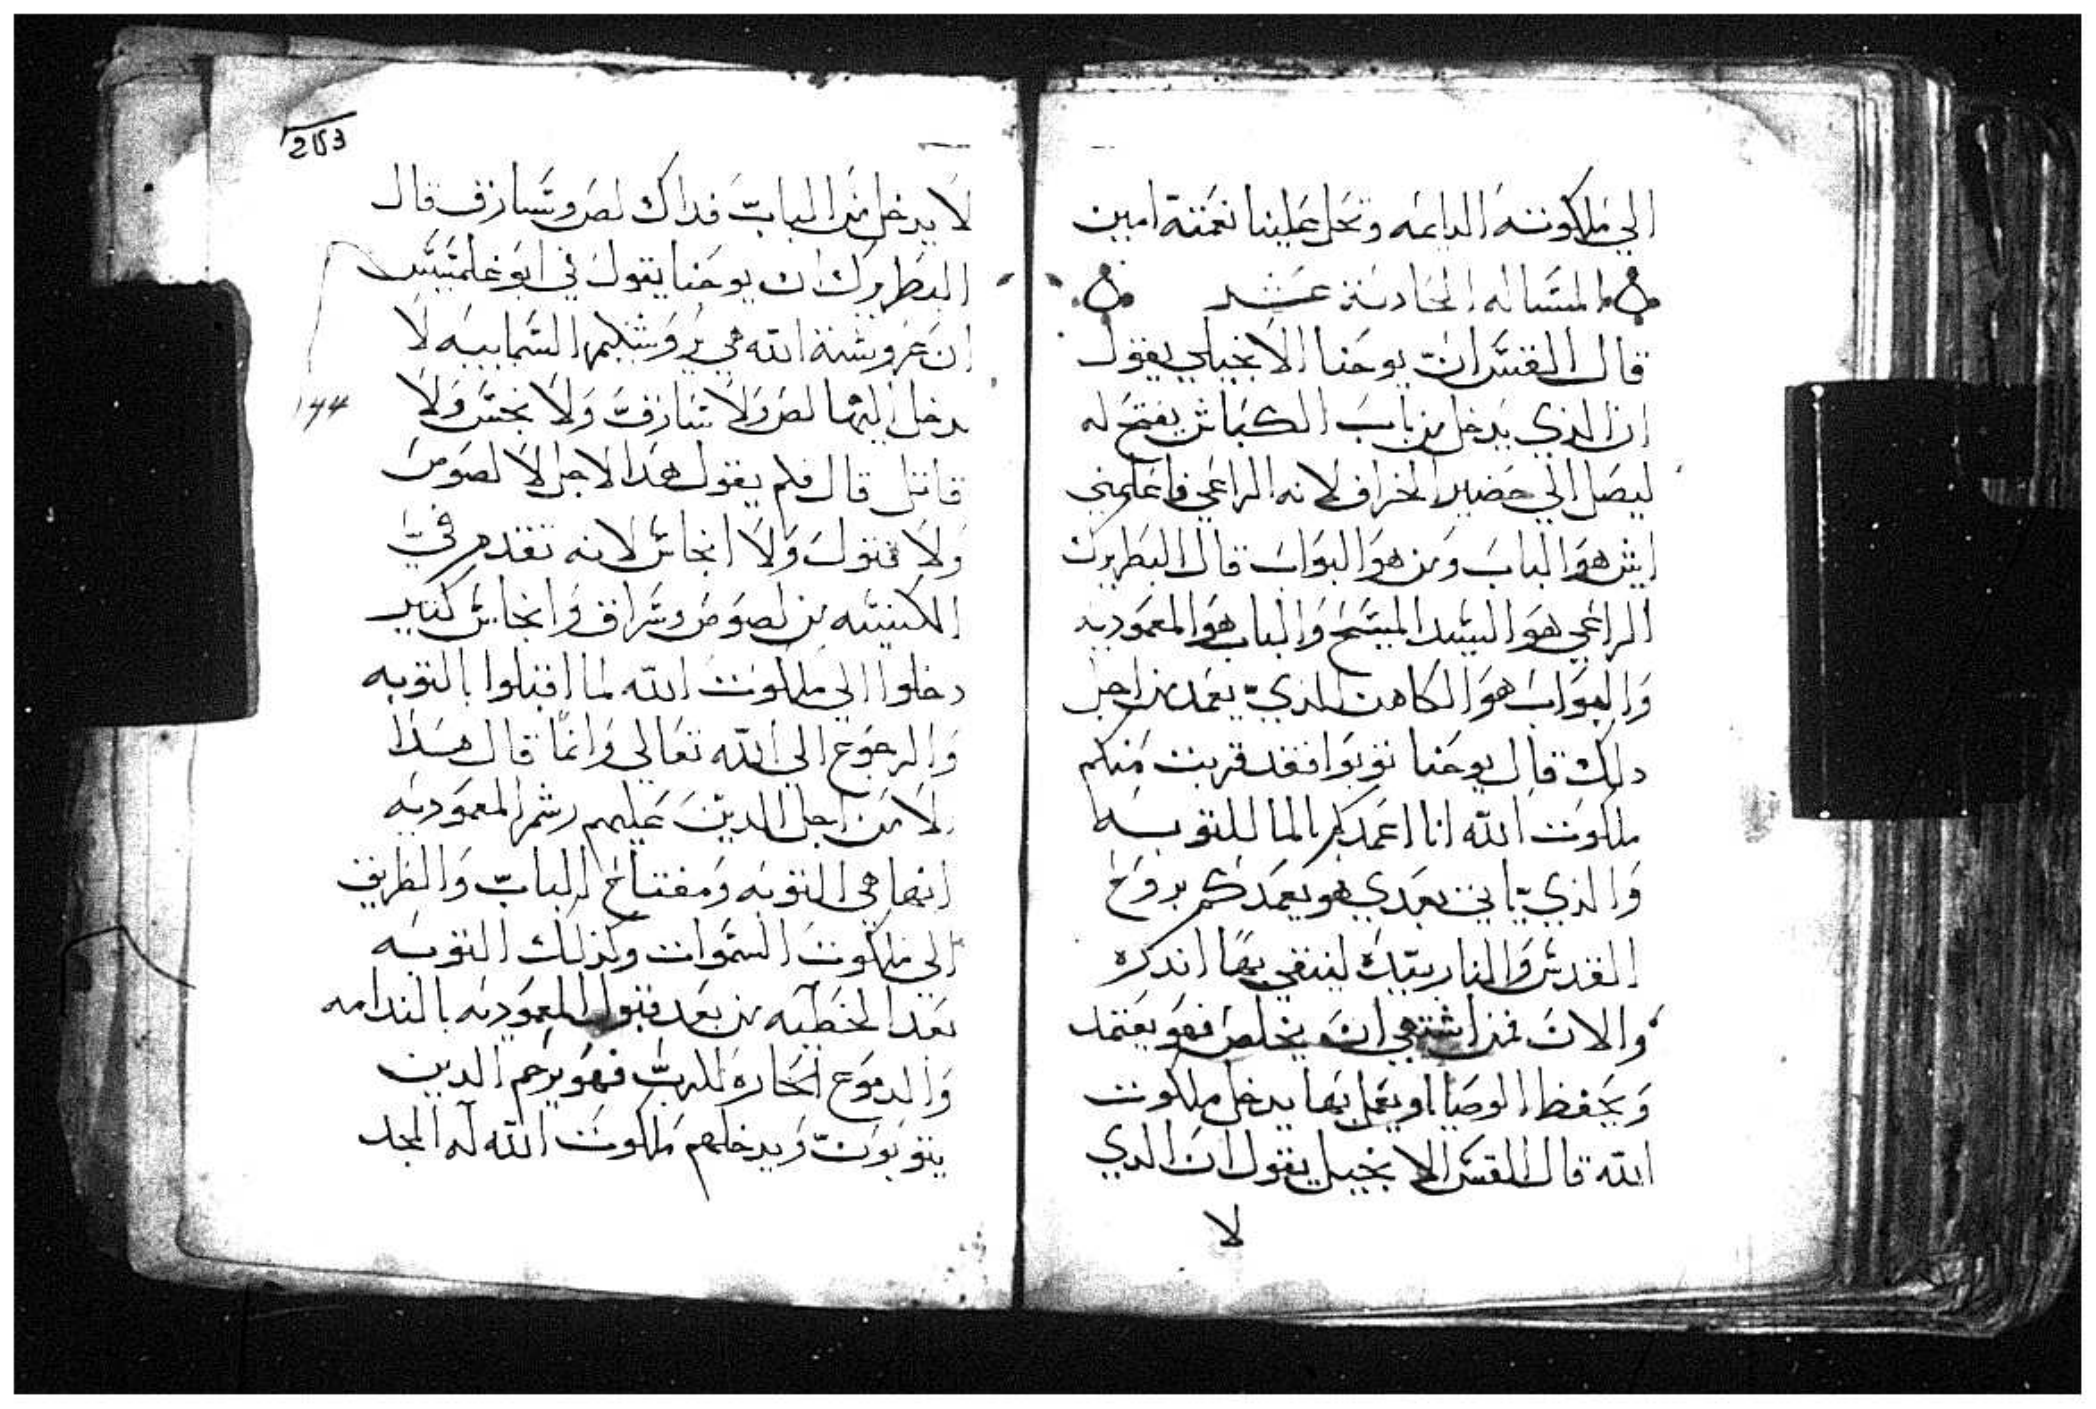 الي ملكوته الدايمه وتحل علينا نعمته امين
المساله الحادية عشر
قال القس ان يوحنا الانجيلي يقول
ان الذي يدخل من باب الكباش يفتح له
ليصل الي حضير الخراف لانه الراعي فاعلمني
ايش هو الباب ومن هو البواب قال البطريرك
الراعي هو السيد المسيح والباب هو المعموديه
والبواب هو الكاهن الذي يعمد من اجل
دلك قال يوحنا توبوا فقد قربت منكم
ملكوت الله انا اعمدكم بالما للتوبه
والذي ياتي بعدي هو يعمدكم بروح
القدس والنار بيده لينقي بها اندكره
والان فمن اشتهي ان يخلص فهو يعتمد
ويحفظ الوصايا ويعمل بها يدخل ملكوت
الله قال القس الانجيل يقول ان الدي
لا
253
لا يدخل من الباب فداك لص وسارق قال
البطريرك ان يوحنا يقول في ابوغلمسيس
ان عروسة الله هي يروشليم السماييه لا
يدخل اليها لص ولا سارق ولا نجس ولا
قاتل قال فلم يقول هدا لاجل لا لصوص
ولا قتول ولا انجاس لانه تقدم في
الكنيسه من لصوص وسراق وانجاس كتير
دخلوا الي ملكوت الله لما اقبلوا بالتوبه
والرجوع الي الله تعالي وانما قال هدا
لا من اجل الدين عليهم رشم المعموديه
انها هي التوبه ومفتاح الباب والطريق
الي ملكوت السموات وكذلك التوبه
بعد الخطيه من بعد قبول المعموديه بالندامه
والدموع الحاره للرب فهو يرحم الدين
يتوبون ويدخلهم ملكوت الله له المجد
144